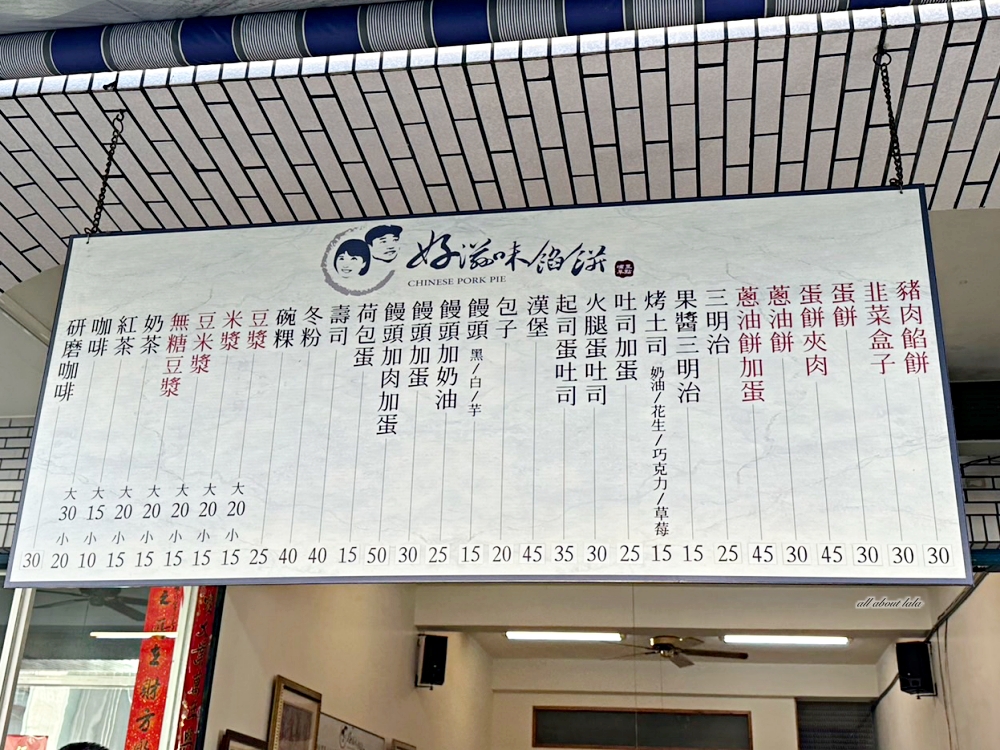 好滋味餡餅
CHINESE PORK PIE
豬肉餡餅 30
韭菜盒子 30
蛋餅 30
蛋餅夾肉 45
蔥油餅 30
蔥油餅加蛋 45
三明治 25
果醬三明治 15
烤土司 奶油/花生/巧克力/草莓 15
吐司加蛋 25
火腿蛋吐司 30
起司蛋吐司 35
漢堡 45
包子 20
饅頭 黑/白/芋 15
饅頭加奶油 25
饅頭加蛋 30
饅頭加肉加蛋 50
荷包蛋 15
壽司 40
冬粉 40
碗粿 25
豆漿 大20 小15
米漿 大20 小15
豆米漿 大20 小15
無糖豆漿 大20 小15
奶茶 大20 小15
紅茶 大15 小10
咖啡 大30 小20
研磨咖啡 30
all about lala